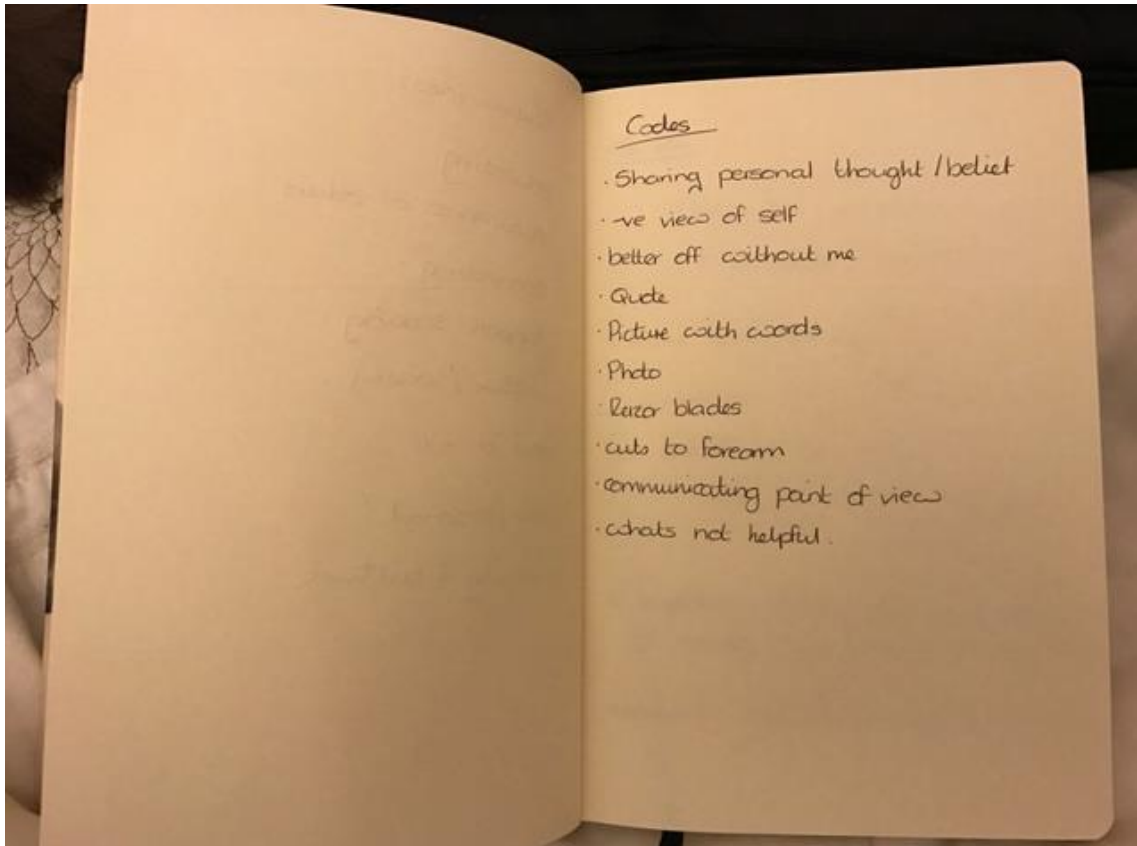 Codes
· Sharing personal thought / belief
· -ve view of self
· better off without me
· Quote
· Picture with words
· Photo
· Razor blades
· cuts to forearm
· communicating point of view
· whats not helpful.